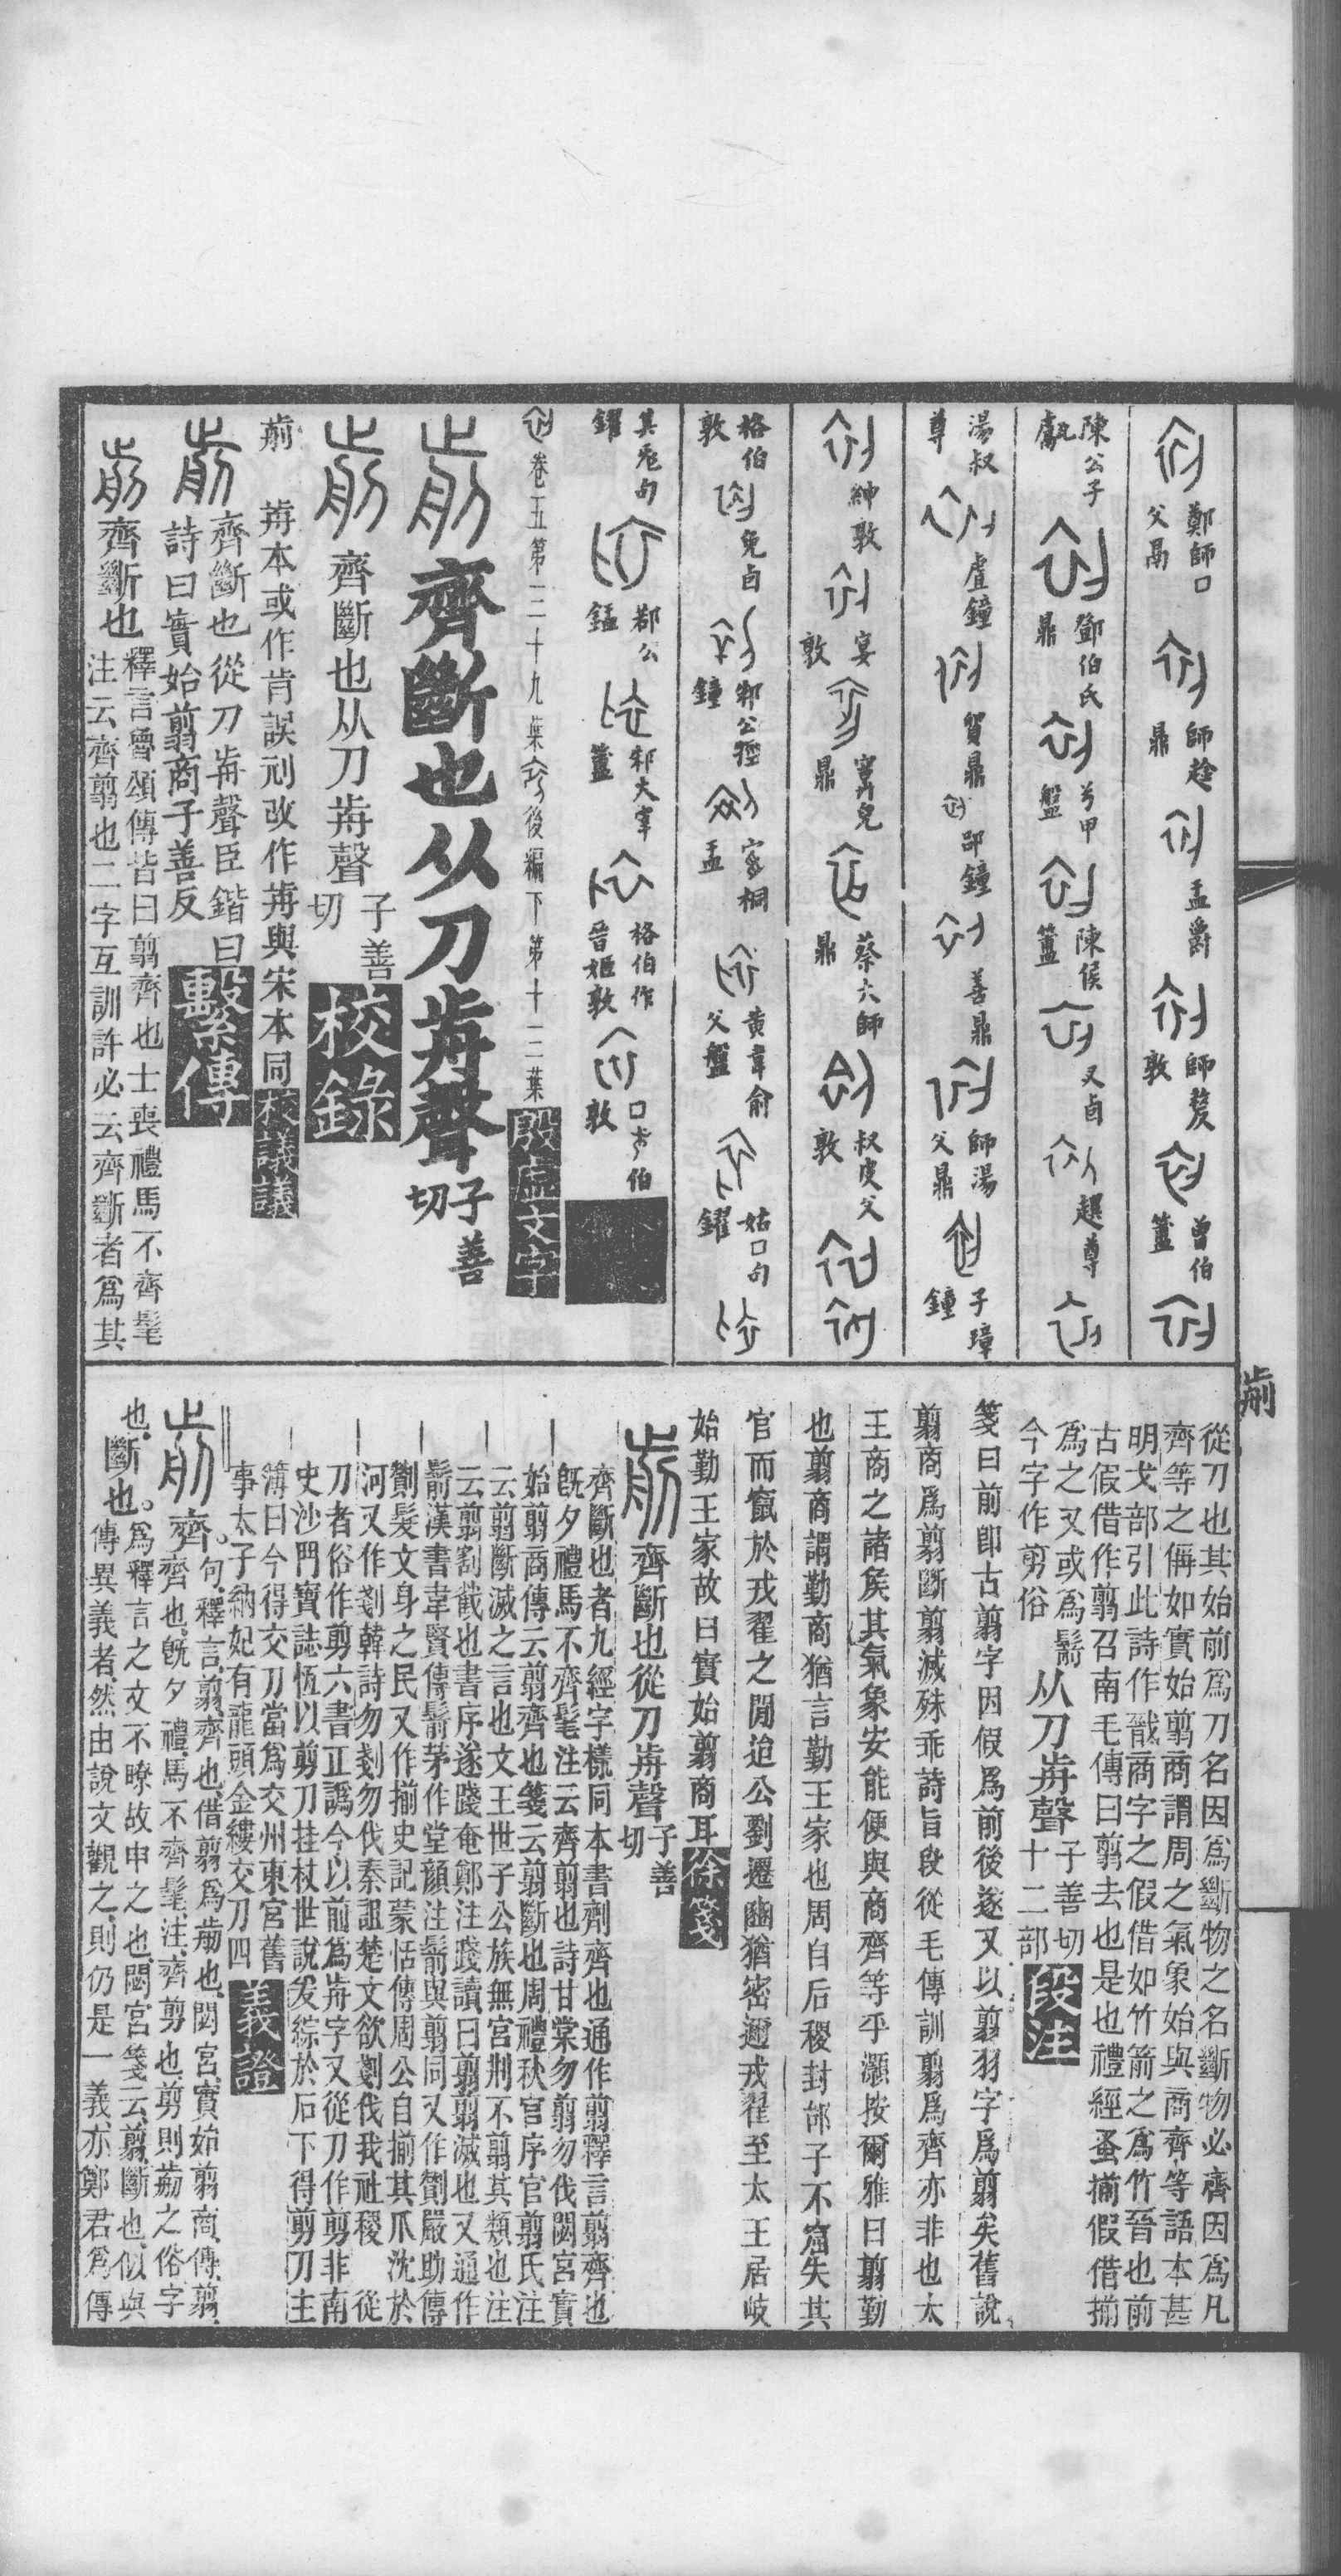 鄭師口父鬲
師趛鼎
盂爵
師𠭰敦
曾伯簠
陳公子甗
鄧伯氏鼎
兮甲盤
陳侯簠
又卣
趩尊
湯叔尊
虘鐘
賀鼎
邵鐘
善鼎
師湯父鼎
子璋鐘
紳敦
宴敦
寏兒鼎
蔡大師鼎
叔皮父敦
格伯敦
兔卣
邾公牼鐘
黃韋俞父盤
姑口句鑃
其𠫑句鑃
鄀公簠
邾大宰簠
格伯作晉姬敦
卷五第三十九葉
後編下第十二葉殷虛文字
齊斷也从刀歬聲子善切
齊斷也从刀歬聲子善切校錄
歬本或作肯誤刓改作歬與宋本同校議議
齊斷也從刀歬聲臣鍇曰
詩曰實始翦商子善反繫傳
齊斷也釋言魯頌傳皆曰翦齊也士喪禮馬不齊髦
注云齊翦也二字互訓許必云齊斷者爲其
從刀也其始前爲刀名因爲斷物之名斷物必齊因爲凡
齊等之偁如實始翦商謂周之氣象始與商齊等語本甚
明戈部引此詩作戩商字之假借如竹箭之爲竹晉也前
古假借作翦召南毛傳曰翦去也是也禮經蚤揃假借揃
爲之又或爲鬋从刀歬聲子善切
今字作剪俗十二部段注
箋曰前卽古翦字因假爲前後遂又以翦羽字爲翦矣舊說
翦商爲翦斷翦滅殊乖詩旨段從毛傳訓翦爲齊亦非也太
王商之諸矦其氣象安能便與商齊等乎灝按爾雅曰翦勤
也翦商謂勤商猶言勤王家也周自后稷封邰子不窋失其
官而竄於戎翟之閒迨公劉遷豳猶密邇戎翟至太王居岐
始勤王家故曰實始翦商耳徐箋
齊斷也從刀歬聲子善切
齊斷也者九經字樣同本書劑齊也通作翦釋言翦齊也
旣夕禮馬不齊髦注云齊翦也詩甘棠勿翦勿伐閟宮實
始翦商傳云翦齊也箋云翦斷也周禮秋官序官翦氏注
云翦斷滅之言也文王世子公族無宮刑不翦其類也注
云翦割截也書序遂踐奄鄭注踐讀曰翦翦滅也又通作
鬋漢書韋賢傳鬋茅作堂顏注鬋與翦同又作劗嚴助傳
劗髮文身之民又作揃史記蒙恬傳周公自揃其爪沈於
河又作剗韓詩勿剗勿伐秦詛楚文欲剗伐我社稷　從
刀者俗作剪六書正譌今以前爲歬字又從刀作剪非南
史沙門寶誌恆以剪刀挂杖世說发綜於后下得剪刀主
簿曰今得交刀當爲交州東宮舊
事太子納妃有龍頭金縷交刀四義證
齊。句。釋言。翦齊也。借翦爲歬也。閟宮。實始翦商。傳。翦
齊也。旣夕禮。馬不齊髦。注。齊剪也剪則歬之俗字
也。斷也。爲釋言之文不暸故申之也閟宮箋云。翦。斷也。似與
傳異義者。然由說文觀之。則仍是一義。亦鄭君爲傳